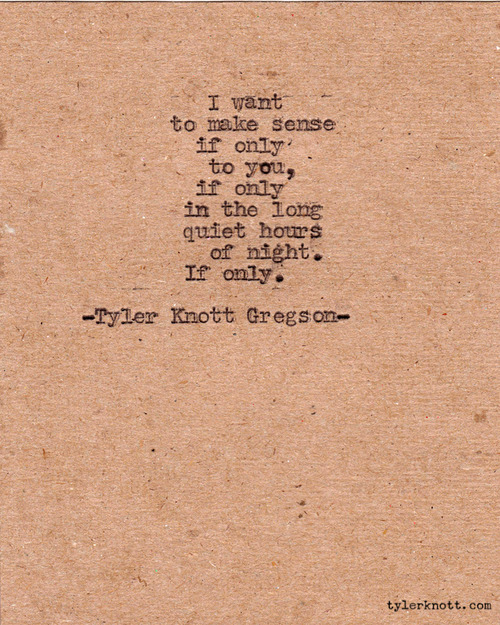 I want
to make sense
if only
to you,
if only
in the long
quiet hours
of night.
If only.
-Tyler Knott Gregson-
tylerknott.com